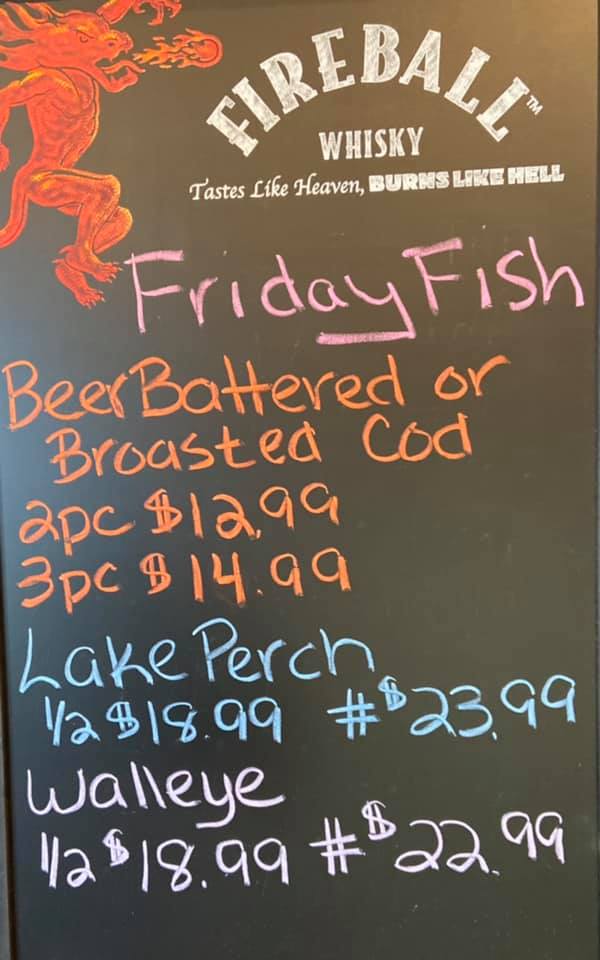 FIREBALL™
WHISKY
Tastes Like Heaven, BURNS LIKE HELL
Friday Fish
Beer Battered or
Broasted Cod
2pc $12.99
3pc $14.99
Lake Perch
1/2 $18.99 #$23.99
Walleye
1/2 $18.99 #$22.99